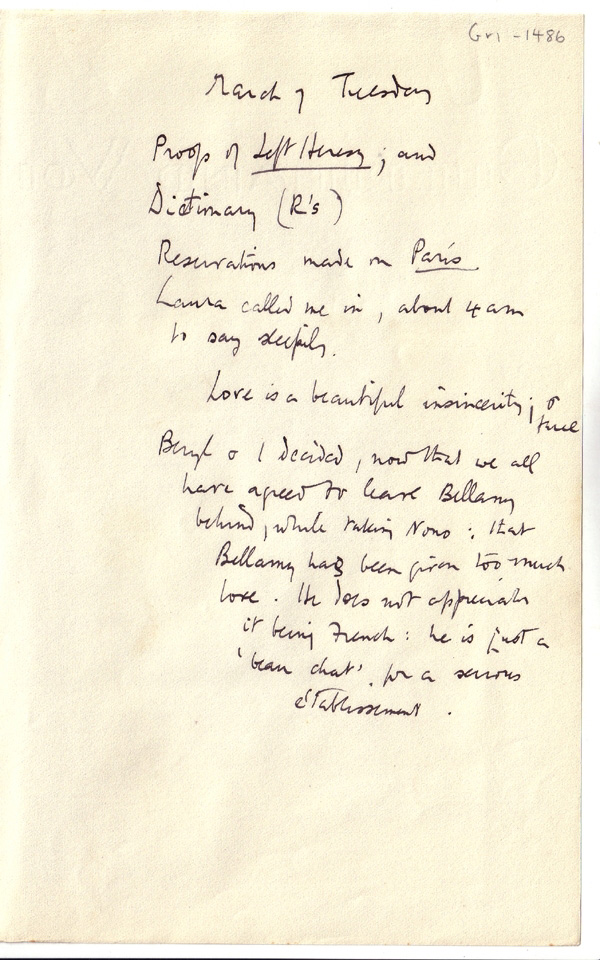 Gri - 1486
March 7 Tuesday
Proofs of Left Heresy ; and
Dictionary (R's)
Reservations made on Paris
Laura called me in, about 4 am
to say sleepily.
Love is a beautiful insincerity; &
true
Beryl & I decided, now that we all
have agreed to leave Bellamy
behind, while taking Nono : that
Bellamy has been given too much
love. He does not appreciate
it being French : he is just a
'beau chat', for a serious
établissement.